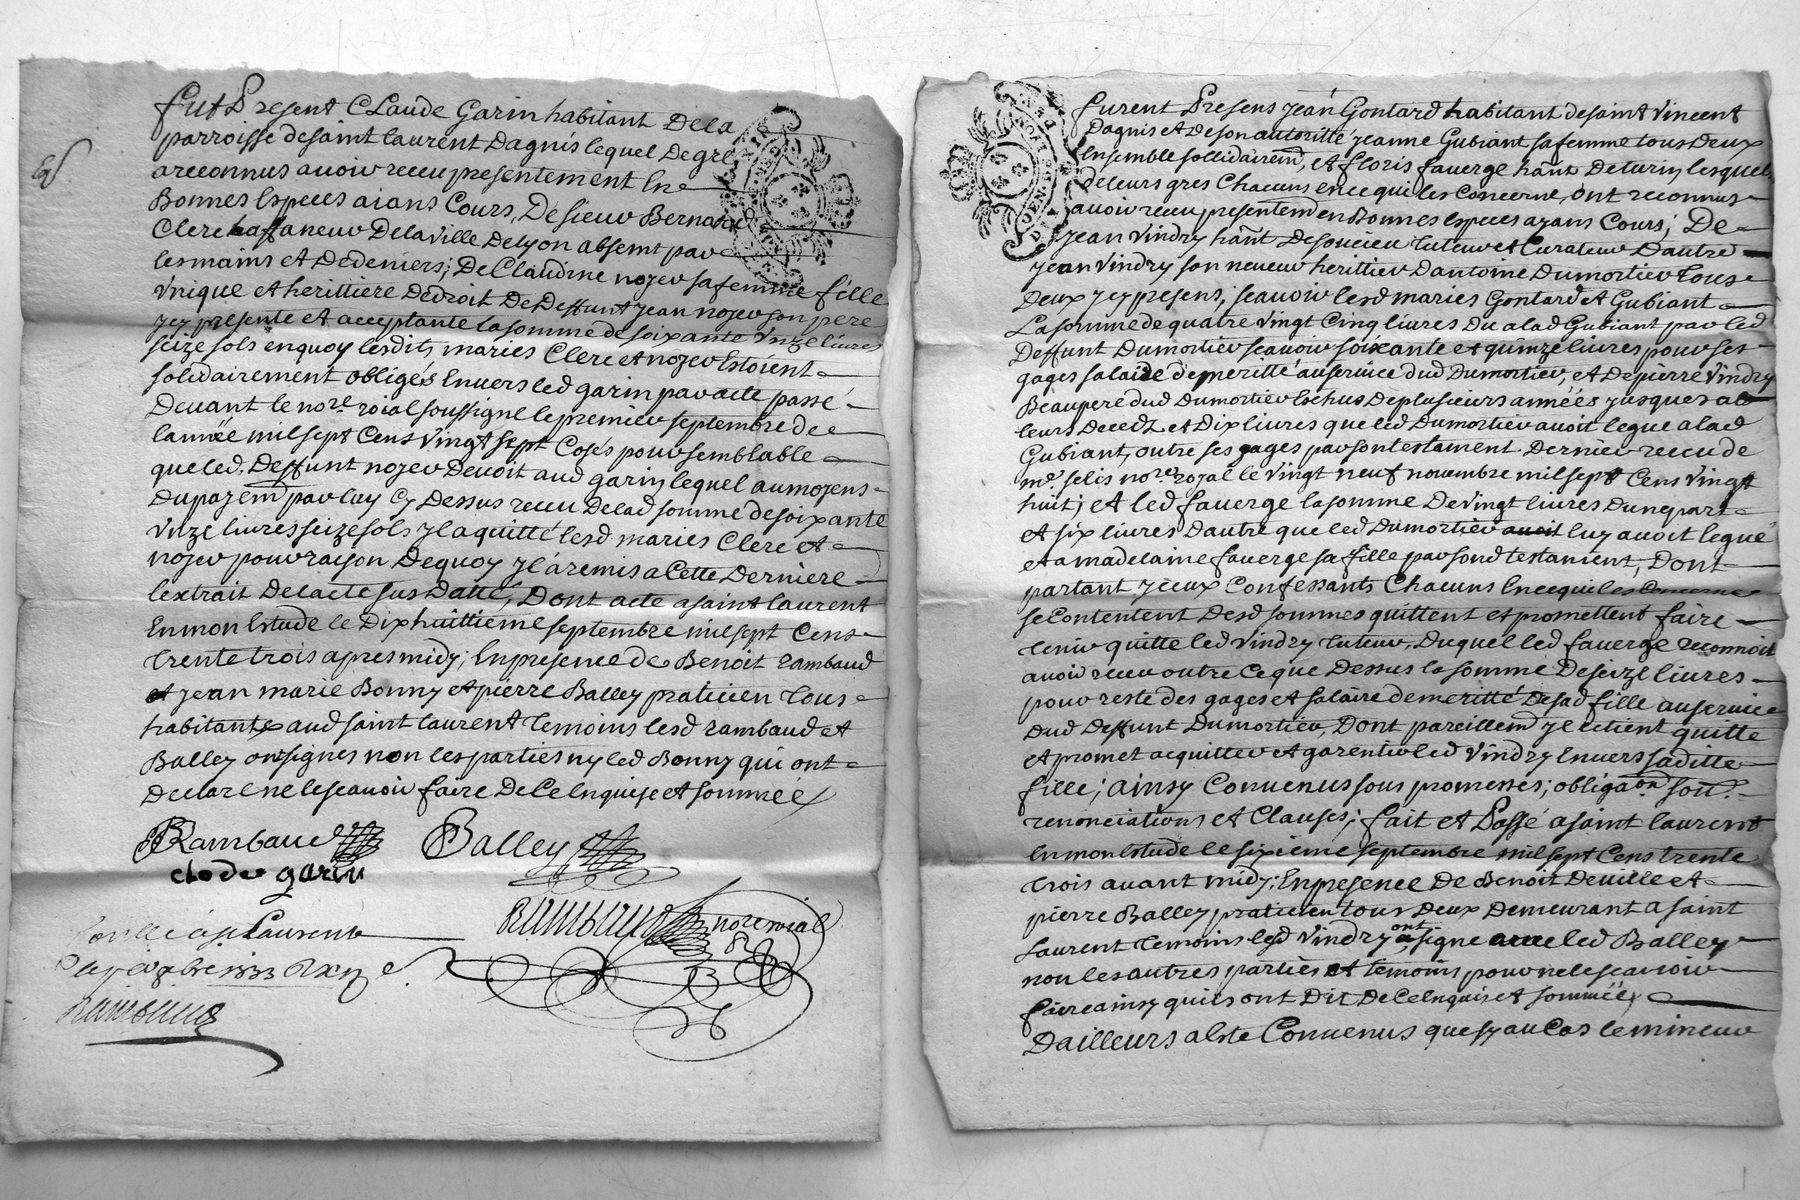 Fut Present Claude Garin habitant De la
parroisse de saint laurent Dagnis lequel De gre
a reconnus avoir receu presentement En
Bonnes Especes aians Cours, De sieur Bernard
Clerc affaneur De la ville De lyon absent par
les mains et De deniers; De Claudine noyer sa femme fille
Unique et herittiere De droit De Deffunt jean noyer son pere
jcy presente et acceptante la somme de soixante Unze livres
seize sols en quoy lesdits mariés Clerc et noyer Estoient
solidairement obligés Envers led garin par acte passé
Devant le no.re roial soussigne le premier septembre De
lannée mil sept Cens Vingt sept Cosés pour semblable
que led. Deffunt noyer Devoit aud garin lequel au moyens
Du payem.t par luy Cy Dessus receu De lad somme de soixante
Unze livres seize sols jl a quitté lesd mariés Clerc et
noyer pour raison De quoy jl a remis a Cette Derniere
lextrait De lacte sus Datté, Dont acte a saint laurent
En mon Estude le Dix huittieme septembre mil sept Cens
trente trois apres midy; En presence de Benoit rambaud
et jean marie Bonny et pierre Balley praticien tous
habitants aud saint laurent temoins lesd rambaud et
Balley ont signes non les parties ny led Bonny qui ont
Declaré ne le scavoir faire De Ce Enquise et sommée
BRambaud Balley
clode garin
rambaud no.re roial
Conllé a st Laurent
le 7bre 1733
rambaud
furent Presens jean Gontard habitant de saint Vincent
Dagnis et De son autoritté jeanne Gubiant sa femme tous Deux
Ensemble sollidairem.t, et floris faverge ha.nt De turin lesquels
de leurs gres Chacuns en ce qui les Concerne, ont reconnus
avoir receu presentem.t en Bonnes Especes ayans Cours; De
jean Vindry ha.nt De soucieu tuteur et Curateur Dautre
jean Vindry son neveu herittier Dantoine Dumortier tous
Deux jcy presens, scavoir lesd mariés Gontard et Gubiant
La somme de quatre Vingt Cinq livres Du a lad Gubiant par led
Deffunt Dumortier scavoir soixante et quinze livres pour ses
gages salaire demeritté au service dud Dumortier, et De pierre Vindry
Beaupere dud Dumortier Eschus De plusieurs années jusques a
leurs Decedz et Dix livres que led Dumortier avoit legue a lad
Gubiant, outre ses gages par son testament Dernier receu de
m.e selis no.re royal le Vingt neuf novembre mil sept Cens Vingt
huit; et led faverge la somme De Vingt livres Dune part
et six livres Dautre que led Dumortier luy avoit legué
et a madelaine faverge sa fille par sond testament, Dont
partant jceux Confessants Chacuns En ce qui les Concerne
se Contentent Desd sommes quittent et promettent faire
tenir quitte led Vindry tuteur, Duquel led faverge reconnoit
avoir receu outre Ce que Dessus la somme De seize livres
pour reste des gages et salaire demeritté De sad fille au service
dud Deffunt Dumortier, Dont pareillem.t jl le tient quitte
et promet acquitter et garentir led Vindry Envers sa ditte
fille; ainsy Convenus sous promesses; obliga.on soum.s
renonciations et Clauses; fait et Passé a saint laurent
En mon Estude le sixieme septembre mil sept Cens trente
trois avant midy; En presence De Benoit Deville et
pierre Balley praticien tous Deux Demeurant a saint
Laurent temoins lesd Vindry ont signe avec led Balley
non les autres parties et temoins pour ne le scavoir
faire ainsy quils ont Dit De Ce Enquis et sommés
Dailleurs a Esté Convenus que sy au Cas le mineur